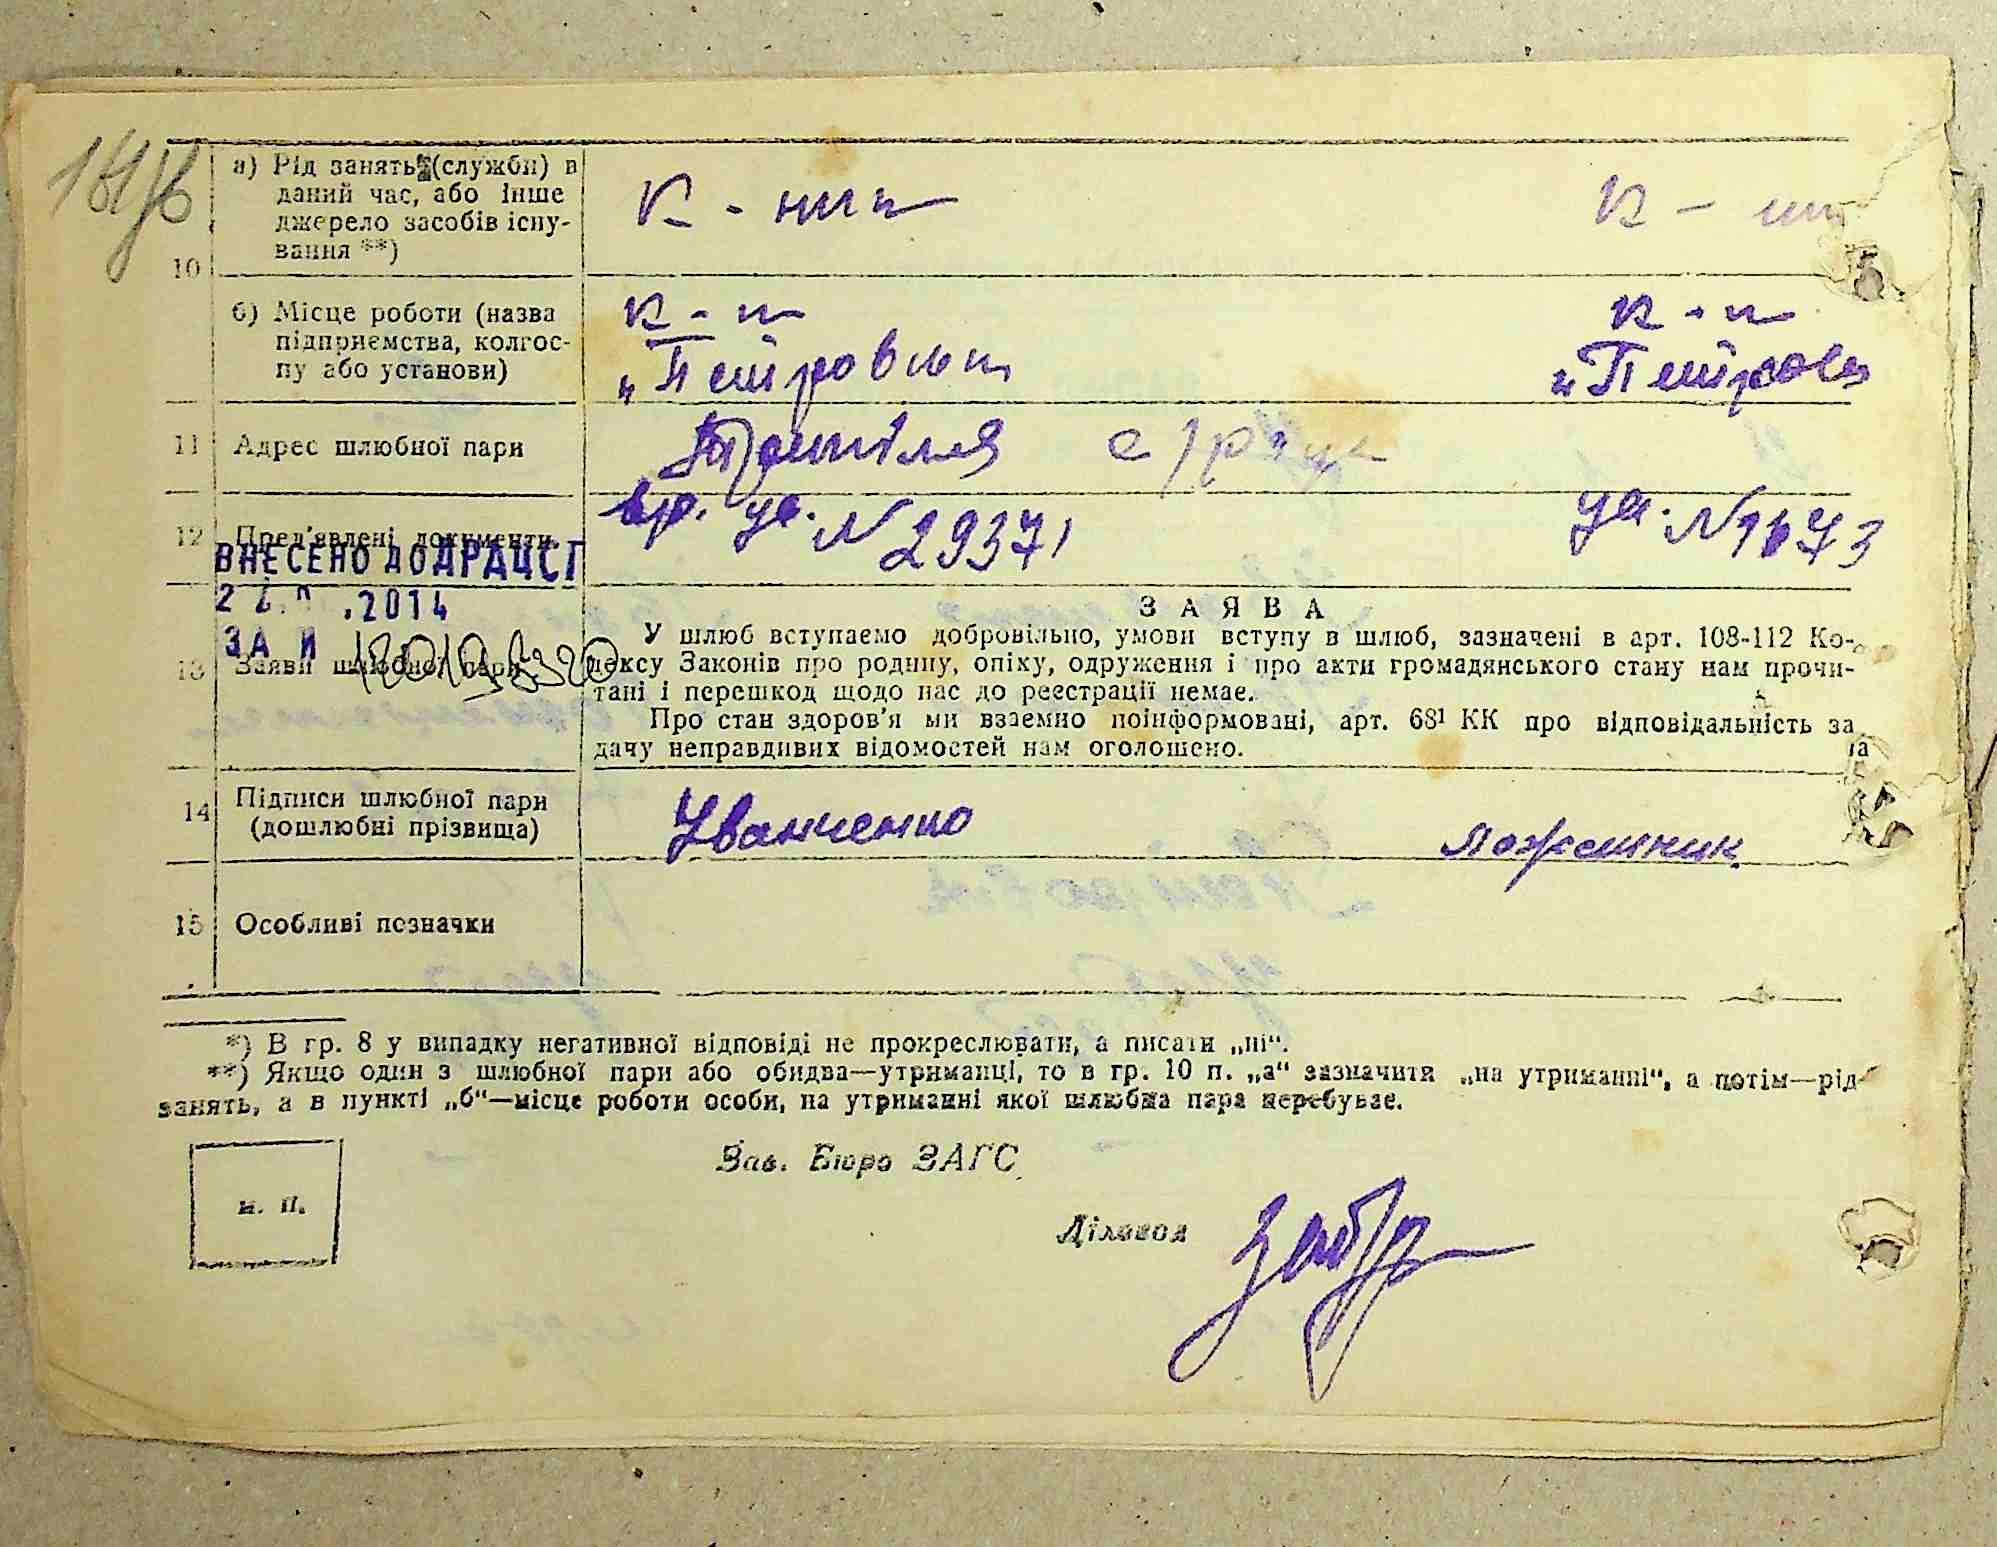 10
а) Рід занять (служби) в
даний час, або інше
джерело засобів існу-
вання **)
к-ник
к -
б) Місце роботи (назва
підприємства, колгос-
пу або установи)
к-п
к-п
"Петровськ
"Петровс
11 Адрес шлюбної пари
Трипілля
12 Пред'явлені документи
вр. уд. N 29371
уд. N 1673
ВНЕСЕНО ДО ДРАЦСГ
.2014
ЗА №
13 Заяви шлюбної пари
ЗАЯВА
У шлюб вступаемо добровільно, умови вступу в шлюб, зазначені в арт. 108-112 Ко-
дексу Законів про родину, опіку, одруження і про акти громадянського стану нам прочи-
тані і перешкод щодо нас до реєстрації немає.
Про стан здоров'я ми взаємно поінформовані, арт. 68¹ КК про відповідальність за
дачу неправдивих відомостей нам оголошено.
14 Підписи шлюбної пари
(дошлюбні прізвища)
Иванченко
15 Особливі позначки
*) В гр. 8 у випадку негативної відповіді не прокреслювати, а писати „ні“.
**) Якщо один з шлюбної пари або обидва—утриманці, то в гр. 10 п. „а“ зазначити „на утриманні“, а потім—рід
занять, а в пункті „б“—місце роботи особи, на утриманні якої шлюбна пара перебуває.
Зав. Бюро ЗАГС
м. п.
Діловод